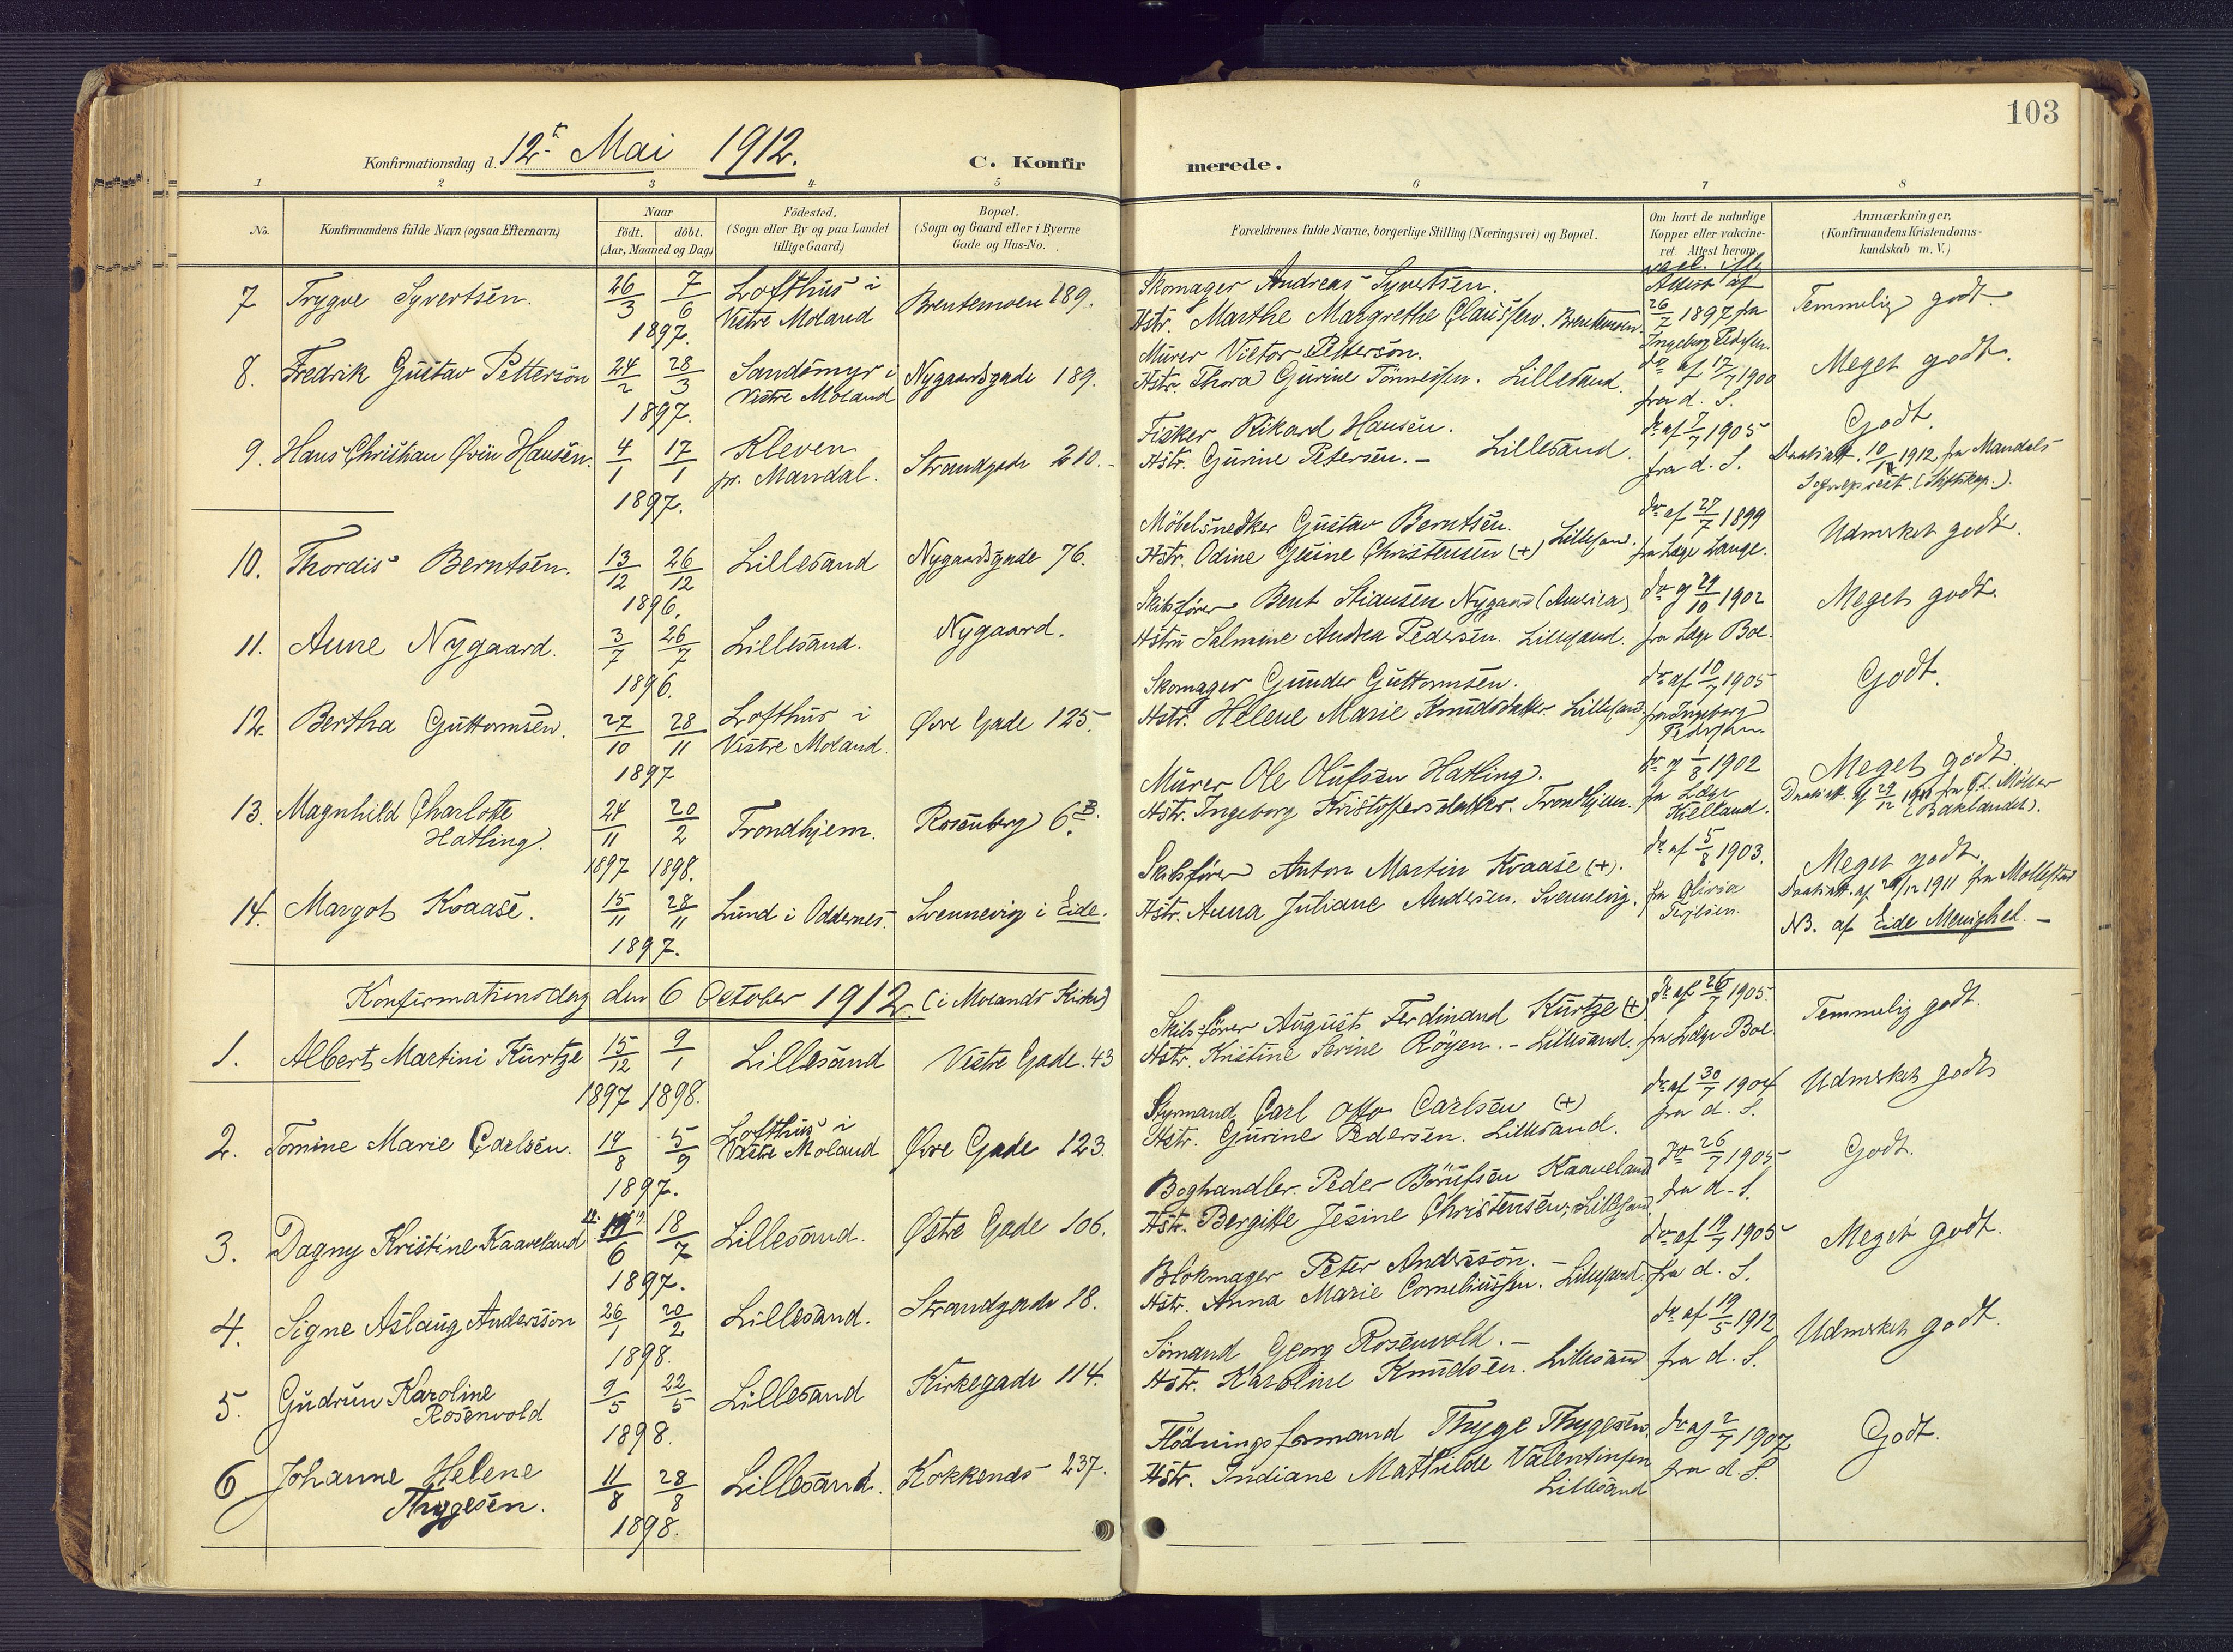 103
Konfirmationsdag d. 12te Mai 1912.
C. Konfir merede.
1 2 3 4 5 6 7 8
No. Konfirmandens fulde Navn (ogsaa Efternavn) Naar født. døbt. (Aar, Maaned og Dag) Födested. (Sogn eller By og paa Landet tillige Gaard) Bopæl. (Sogn og Gaard eller i Byerne Gade og Hus-No. Forældrenes fulde Navne, borgerlige Stilling (Næringsvei) og Bopæl. Om havt de naturlige Kopper eller vakcineret. Attest herom Anmærkninger, (Konfirmandens Kristendomskundskab m. V.)
7 Trygve Syvertsen. 26/3 7/6 1897. Lofthus i Vestre Moland Brentemoen 189.
Skomager Andreas Syvertsen.
Hstr. Marthe Margrethe Claussen. Brentemoen.
Attest af 26/7 1897 fra Ingeborg Pedersen.
Temmelig godt.
8. Fredrik Gustav Petterson 24/2 28/3 1897. Sandsmyr i Vestre Moland Nygaardsgade 189.
Murer Victor Petterson.
Hstr. Thora Gurine Tönnessen. Lillesand.
do af 17/7 1900 fra d. S.
Meget godt.
9. Hans Christian Øvin Hansen. 4/1 17/1 1897. Kleven pr. Mandal. Strandgade 210.
Fisker Rikard Hansen.
Hstr. Gurine Petersen. – Lillesand.
do af 7/7 1905 fra d. S.
Godt.
Daabsatt. 1912 fra Mandals
10. Thordis Berntsen. 13/12 26/12 1896. Lillesand Nygaardsgade 76.
Möbelsnedker Gustav Berntsen.
Hstr. Odine Christensen (+) Lillesand.
do af 27/7 1899 fra Læge Lange.
Udmerket godt.
11. Anne Nygaard. 3/7 26/7 1896. Lillesand. Nygaard.
Skibsfører Bent Stiansen Nygaard (America)
Hstru Salmine Andrea Pedersen. Lillesand.
do af 29/10 1902 fra Læge Boe.
Meget godt.
12. Bertha Guttormsen. 27/10 28/11 1897 Lofthus i Vestre Moland. Øvre Gade 125.
Skomager Gunder Guttormsen.
Hstr. Helene Marie Knudsdatter. Lillesand.
do af 10/7 1905 fra Ingeborg Pedersen
Godt.
13. Magnhild Charlotte Hatling. 24/11 1897 20/2 1898. Trondhjem. Rosenberg 6B.
Murer Ole Olufsen Hatling.
Hstr. Ingeborg Kristoffersdatter. Trondhjem.
do af 1/8 1902 fra Læge Kielland.
Meget godt.
Daabsatt. af 29/12 fra Møller (Baklandet).
14. Margot Kvaase. 15/11 28/11 1897. Lund i Oddernes. Svennevig i Eide.
Skibsfører Anton Martin Kvaase (+).
Hstr. Anna Juliane Andersen. Svennevig.
do af 5/8 1903. fra Olivia Terjesen.
Meget godt.
Daabsatt. af 29/12 1911 fra
NB. af Eide Menighed. –
Konfirmationsdag den 6 October 1912. (i Molands Kirke)
1. Albert Martini Kurtze 15/12 1897 9/1 1898. Lillesand Vestre Gade. 43
Skibsfører August Ferdinand Kurtze (+)
Hstr. Kristine Serine Röyen. – Lillesand.
do af 26/7 1905. fra Læge Boe
Temmelig godt.
2. Tomine Marie Carlsen. 19/8 5/9 1897. Lofthus i Vestre Moland Øvre Gade 123.
Styrmand Carl Otto Carlsen (+)
Hstr. Gurine Pedersen. Lillesand.
do af 30/7 1904 fra d. S.
Udmerket godt
3. Dagny Kristine Kaaveland 19/6 18/7 1897. Lillesand. Østre Gade 106.
Boghandler. Peder Börufsen Kaaveland
Hstr. Bergitte Jesine Christensen, Lillesand
do 26/7 1905 fra d. S.
Godt.
4. Signe Aslaug Andersson 26/1 20/2 1898. Lillesand. Strandgade 18.
Blokmager Peter Andersson. –
Hstr. Anna Marie Corneliussen. Lillesand.
do af 19/7 1905 fra d. S.
Meget godt.
5. Gudrun Karoline Rosenvold 9/5 22/5 1898. Lillesand Kirkegade 114.
Sømand Georg Rosenvold. –
Hstr. Karoline Knudsen. Lillesand
do af 19/5 1912 fra d. S.
Udmerket godt.
6 Johanne Helene Thygesen. 11/8 28/8 1898. Lillesand. Kokkenes 237.
Flödningsformand Thyge Thygesen.
Hstr. Indiane Mathilde Valentinsen
Lillesand
do af 2/7 1907 fra d. S.
Godt.